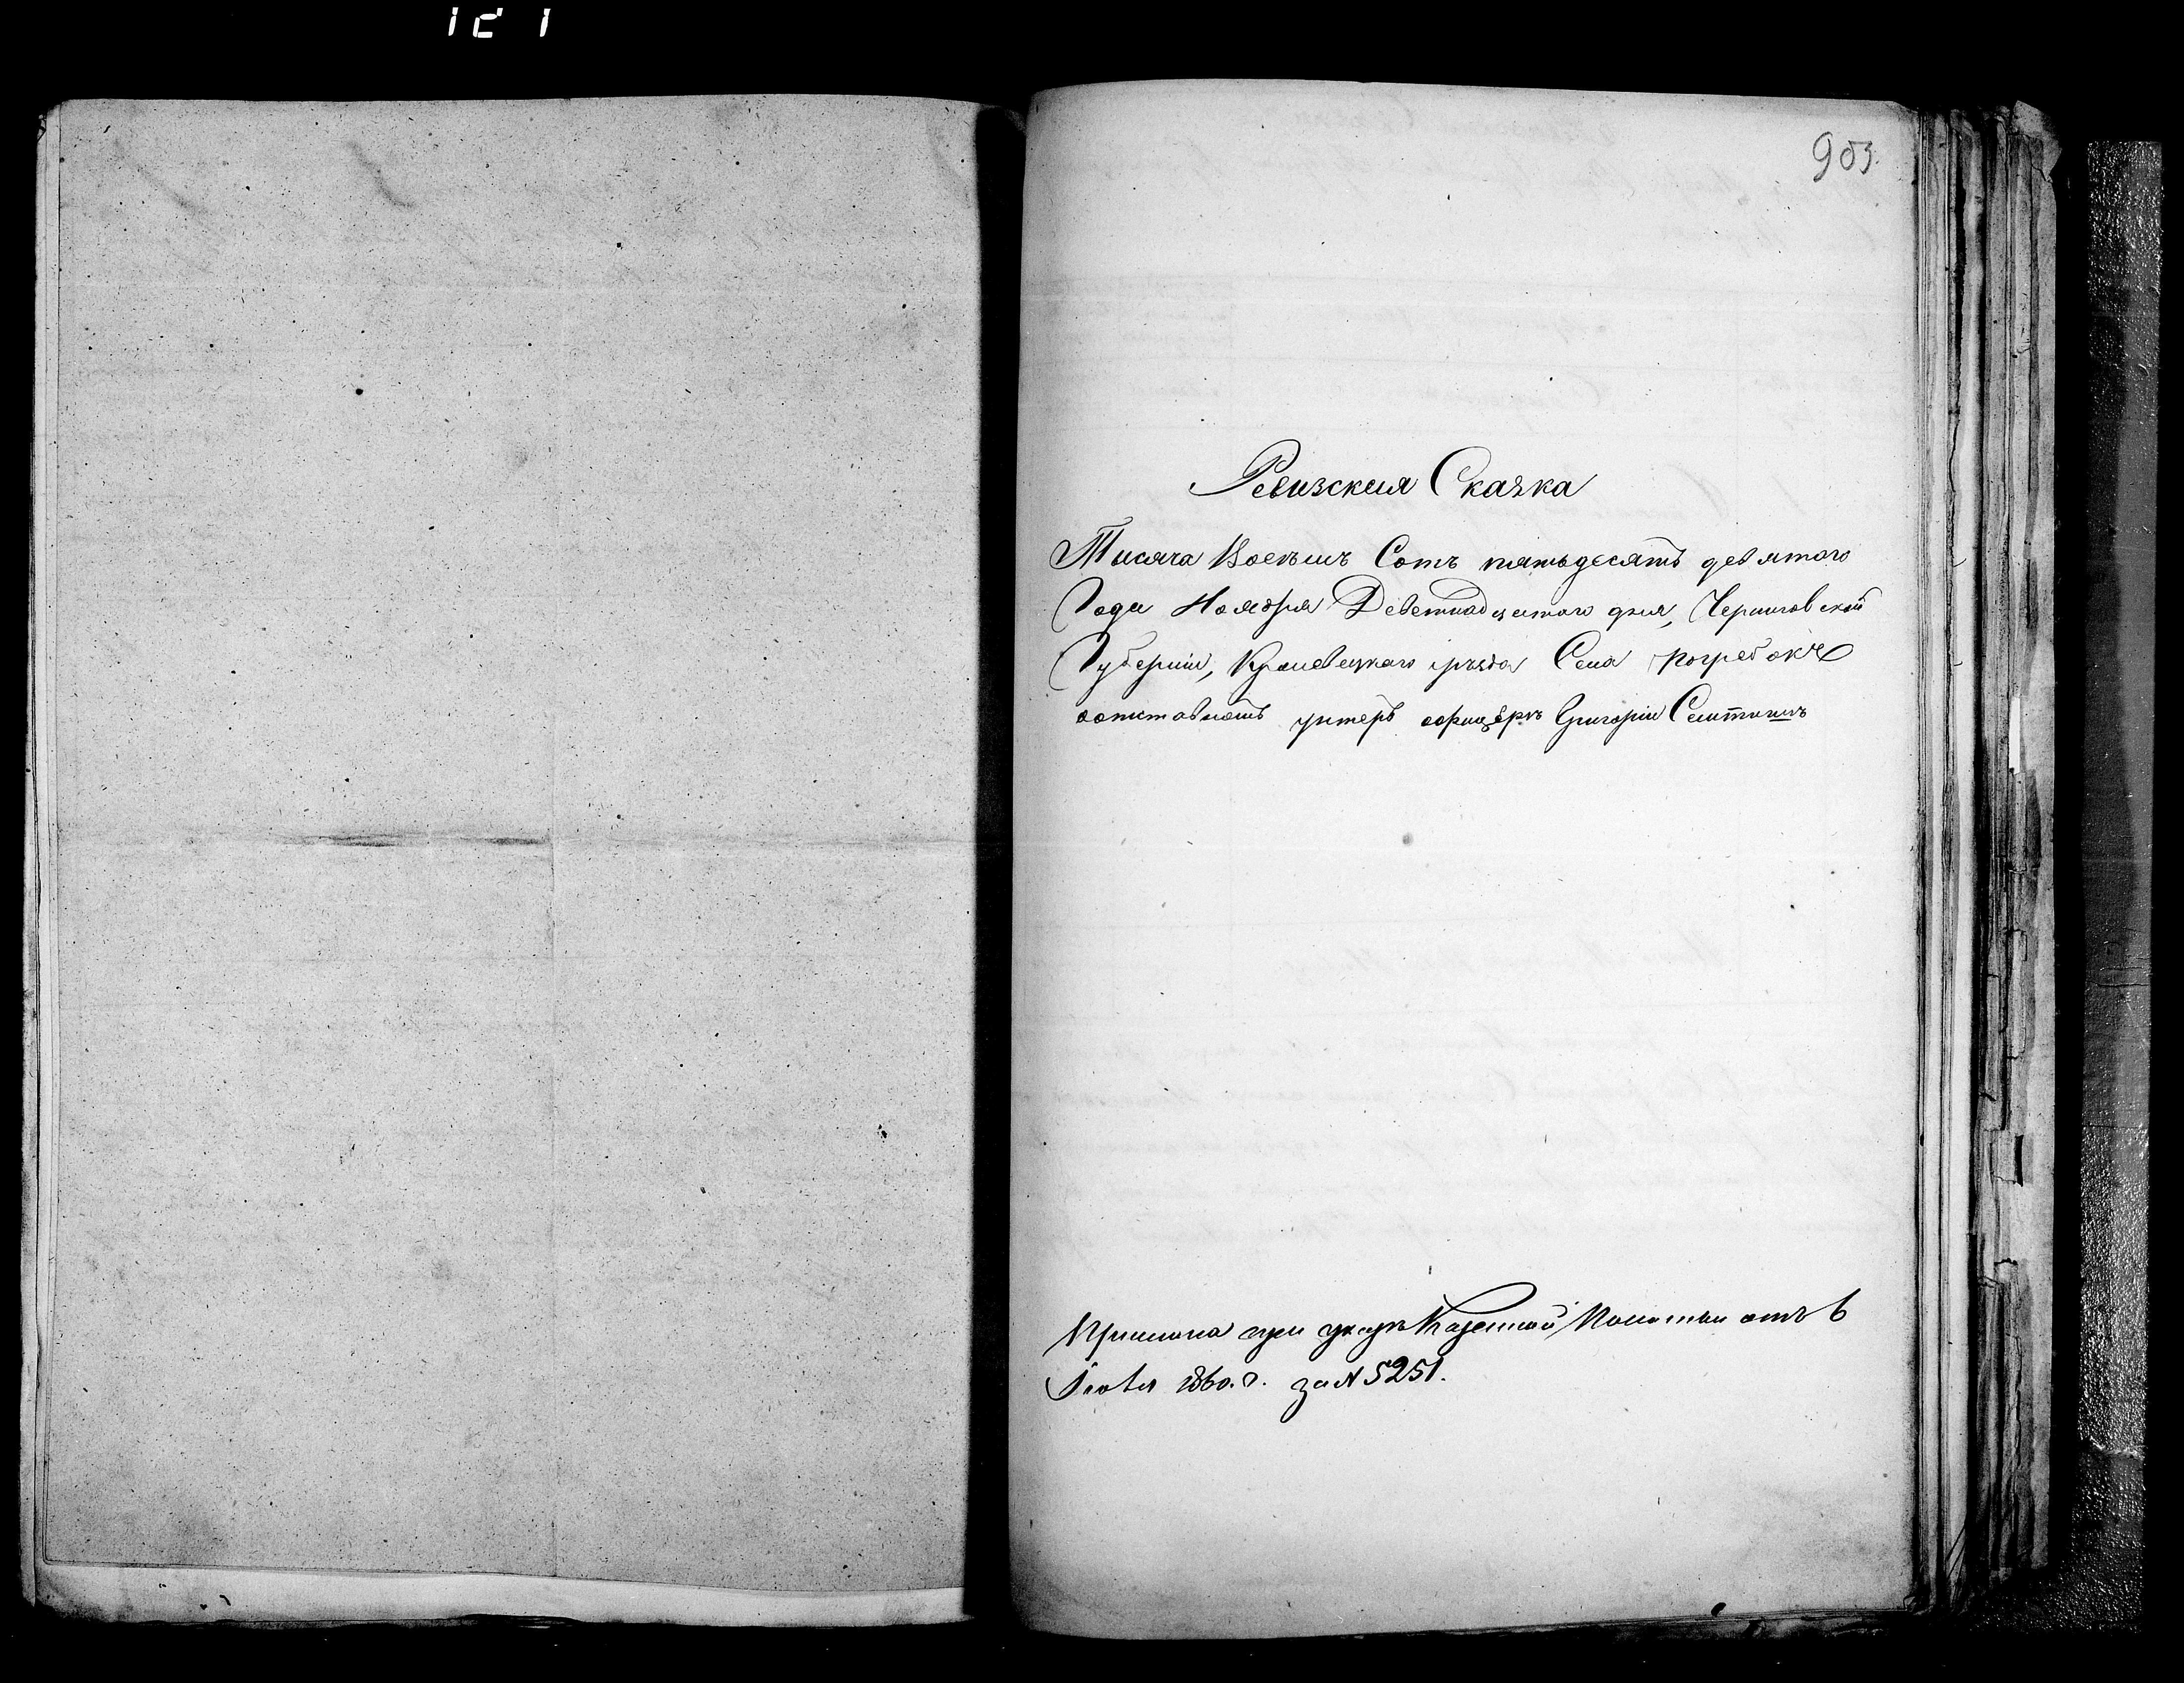 903.
Ревизская Сказка
Тисяча Восемъ Сотъ пятьдесятъ девятого
Года Ноября Деветнадцатого дня, Черниговской
Губернии, Кролевецкаго уѣзда Села Погребокъ
унтеръ офицеръ Григорій
Прислана при указѣ Казенной Полаты отъ 6
1860. г. за № 5251.